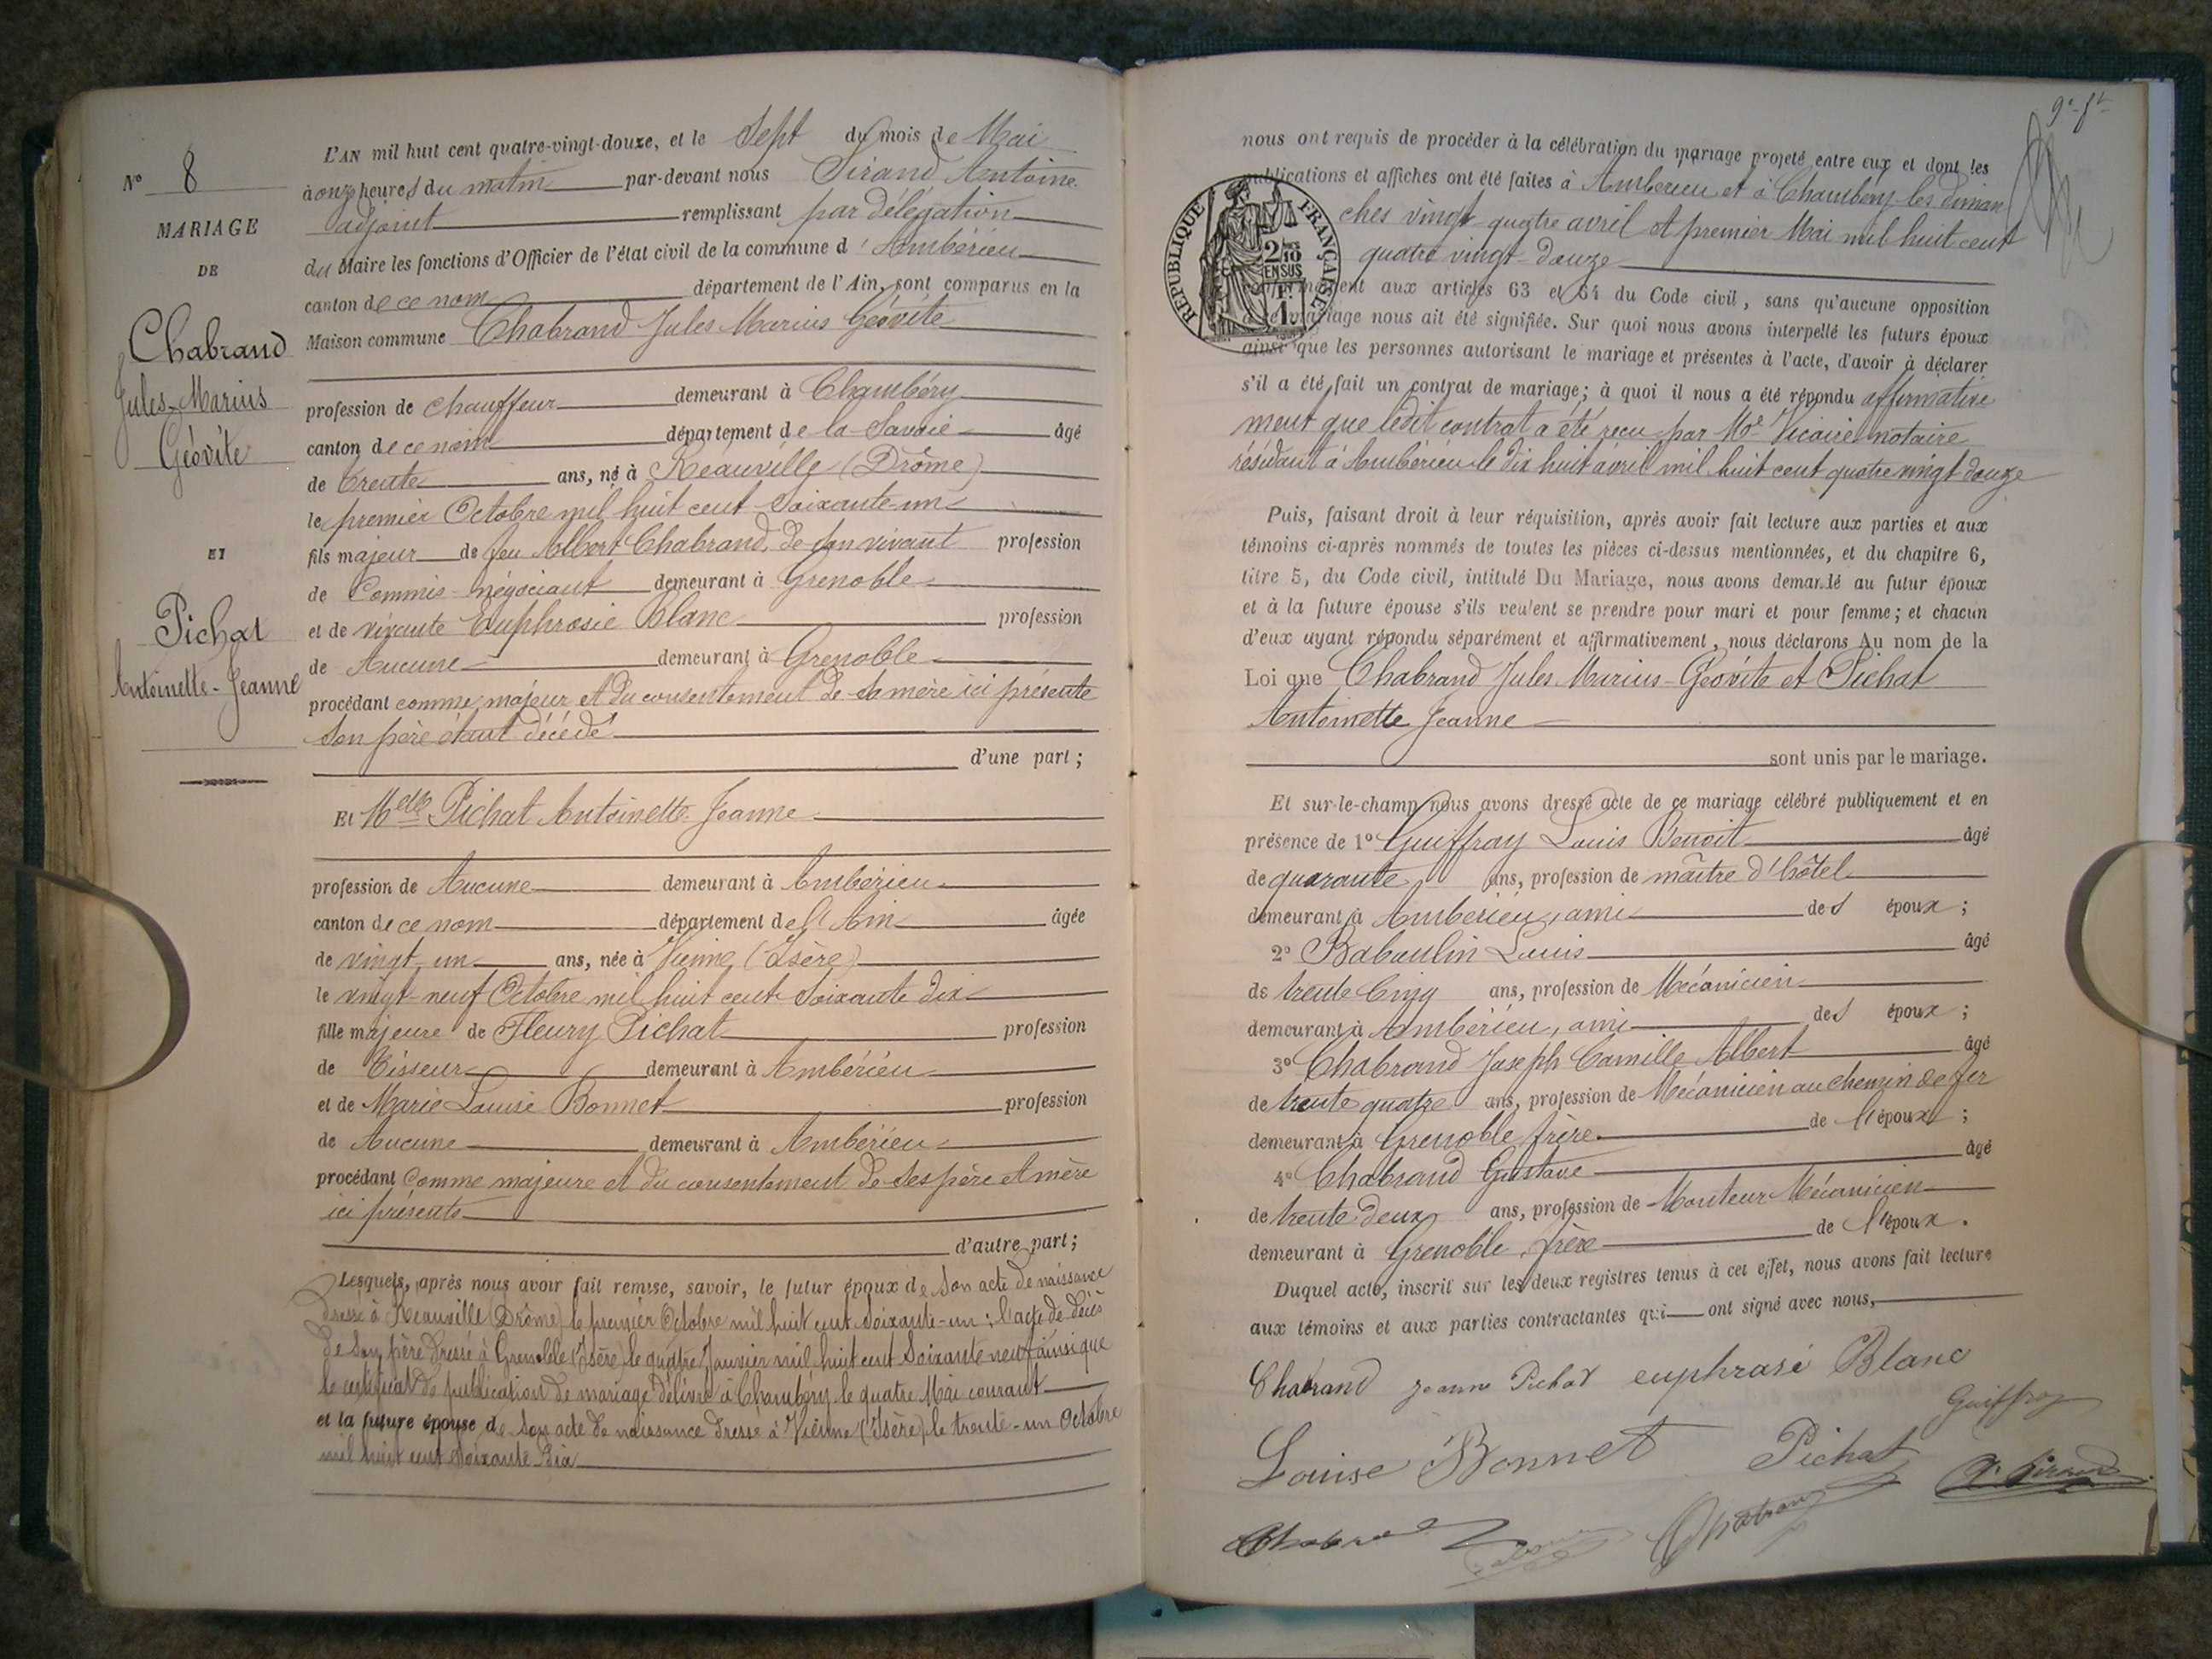 N° 8
MARIAGE
DE
Chabrand
Jules-Marius
Géovite
ET
Pichat
Antoinette-Jeanne
L'AN mil huit cent quatre-vingt-douze, et le Sept du mois de Mai
à onze heures du matin par-devant nous Sirand Antoine
adjoint remplissant par délégation
du Maire les fonctions d'Officier de l'état civil de la commune d'Ambérieu
canton de ce nom département de l'Ain, sont comparus en la
Maison commune Chabrand Jules Marius Géovite
profession de chauffeur demeurant à Chambéry
canton de ce nom département de la Savoie âgé
de trente ans, né à Réauville (Drôme)
le premier Octobre mil huit cent soixante-un
fils majeur de feu Albert Chabrand, de son vivant profession
de Commis-négociant demeurant à Grenoble
et de vivante Euphrosie Blanc profession
de Aucune demeurant à Grenoble
procédant comme majeur et du consentement de sa mère ici présente
son père étant décédé
d'une part ;
Et Melle Pichat Antoinette Jeanne
profession de Aucune demeurant à Ambérieu
canton de ce nom département de l'Ain âgée
de vingt-un ans, née à Vienne (Isère)
le vingt-neuf Octobre mil huit cent soixante dix
fille majeure de Fleury Pichat profession
de Tisseur demeurant à Ambérieu
et de Marie Louise Bonnet profession
de Aucune demeurant à Ambérieu
procédant comme majeure et du consentement de ses père et mère
ici présents
d'autre part ;
Lesquels, après nous avoir fait remise, savoir, le futur époux de son acte de naissance
dressé à Réauville (Drôme) le premier Octobre mil huit cent soixante-un ; l'acte de décès
de son père dressé à Grenoble (Isère) le quatre Janvier mil huit cent soixante neuf ainsi que
le certificat de publication de mariage délivré à Chambéry le quatre Mai courant
et la future épouse de son acte de naissance dressé à Vienne (Isère) le trente-un Octobre
mil huit cent soixante dix
nous ont requis de procéder à la célébration du mariage projeté entre eux et dont les
publications et affiches ont été faites à Ambérieu et à Chambéry les diman
ches vingt-quatre avril et premier Mai mil huit cent
quatre vingt-douze
RÉPUBLIQUE FRANÇAISE
2/10 EN SUS
1
aux articles 63 et 64 du Code civil, sans qu'aucune opposition
mariage nous ait été signifiée. Sur quoi nous avons interpellé les futurs époux
ainsi que les personnes autorisant le mariage et présentes à l'acte, d'avoir à déclarer
s'il a été fait un contrat de mariage; à quoi il nous a été répondu affirmative
ment que ledit contrat a été reçu par Me Vicaire notaire
résidant à Ambérieu le dix huit avril mil huit cent quatre vingt douze
Puis, faisant droit à leur réquisition, après avoir fait lecture aux parties et aux
témoins ci-après nommés de toutes les pièces ci-dessus mentionnées, et du chapitre 6,
titre 5, du Code civil, intitulé Du Mariage, nous avons demandé au futur époux
et à la future épouse s'ils veulent se prendre pour mari et pour femme; et chacun
d'eux ayant répondu séparément et affirmativement, nous déclarons Au nom de la
Loi que Chabrand Jules Marius-Géovite et Pichat
Antoinette Jeanne
sont unis par le mariage.
Et sur-le-champ nous avons dressé acte de ce mariage célébré publiquement et en
présence de 1° Guiffray Louis Benoit âgé
de quarante ans, profession de maître d'hôtel
demeurant à Ambérieu, ami des époux ;
2° Babaulin Louis âgé
de trente cinq ans, profession de Mécanicien
demeurant à Ambérieu, ami des époux ;
3° Chabrand Joseph Camille Albert âgé
de trente quatre ans, profession de Mécanicien au chemin de fer
demeurant à Grenoble frère de l'époux ;
4° Chabrand Gustave âgé
de trente deux ans, profession de Monteur Mécanicien
demeurant à Grenoble, frère de l'époux.
Duquel acte, inscrit sur les deux registres tenus à cet effet, nous avons fait lecture
aux témoins et aux parties contractantes qui ont signé avec nous,
Chabrand Jeanne Pichat euphrasi Blanc
Guiffray
Louise Bonnet Pichat A. Sirand
Chabrand Chabrand